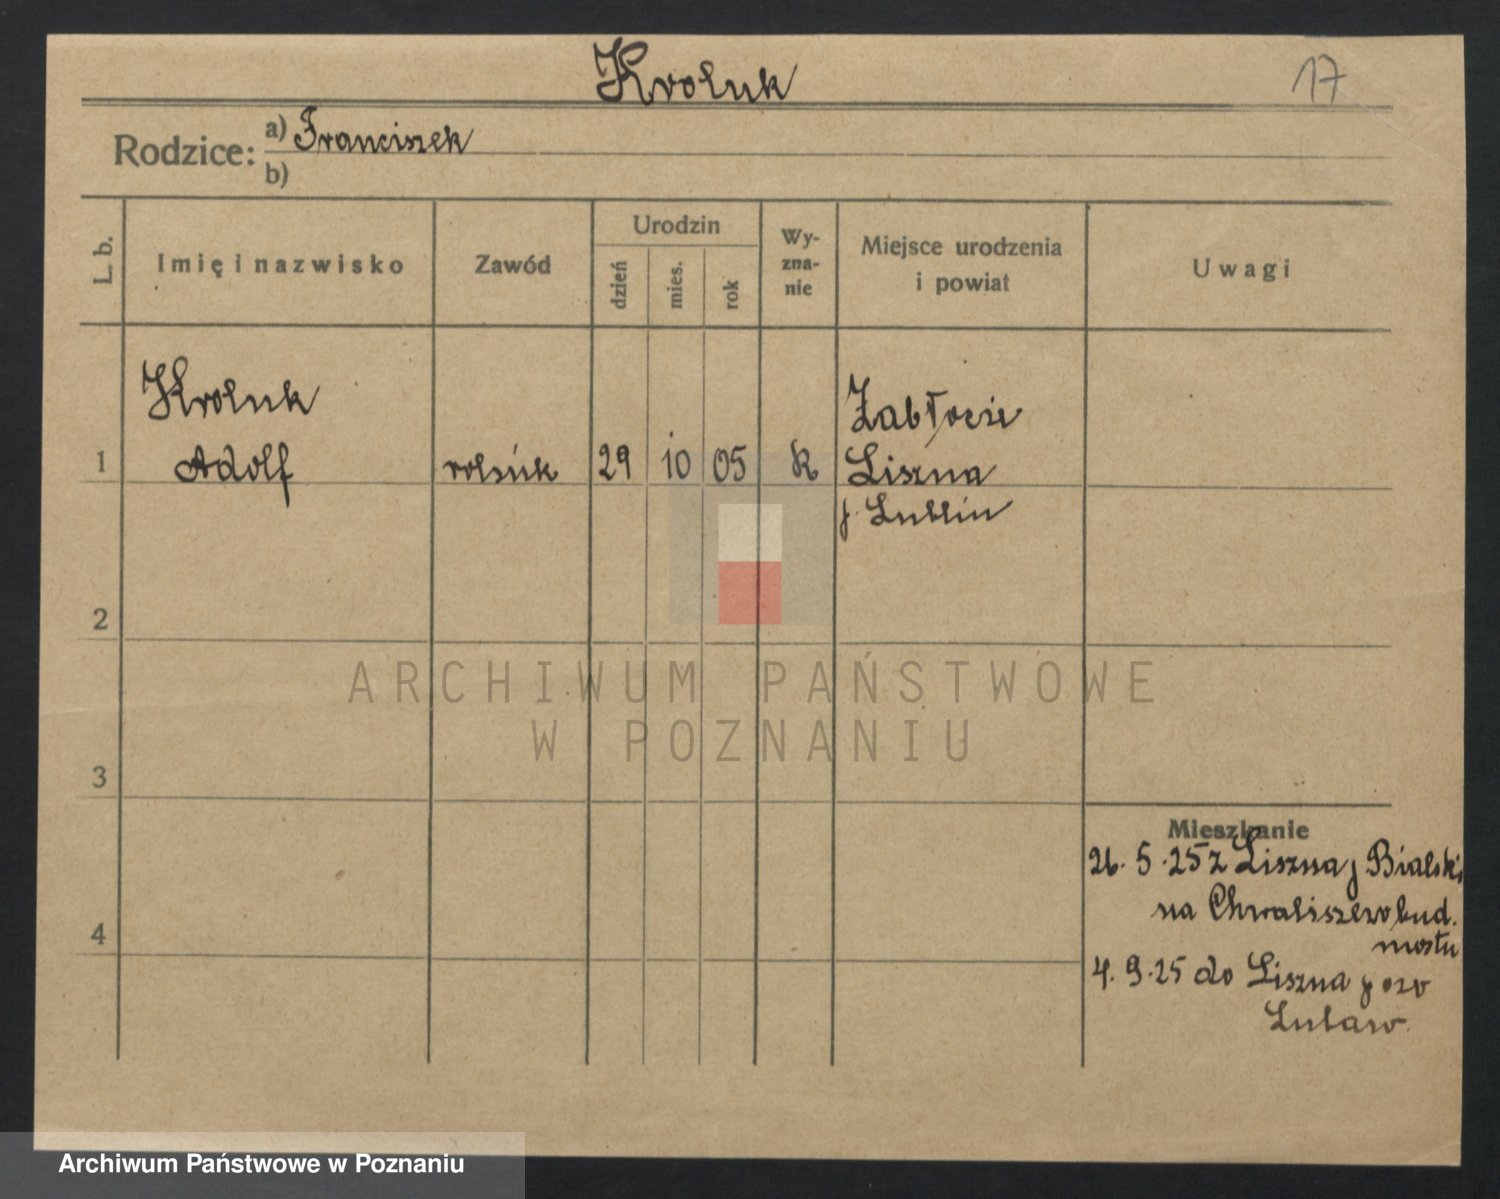 Kroluk
17
Rodzice: a) Franciszek
b)
L. b.
Imię i nazwisko
Zawód
Urodzin
dzień
mies.
rok
Wy-
zna-
nie
Miejsce urodzenia
i powiat
Uwagi
Kroluk
Adolf
1
rolnik
29
10
05
k
Zabłocie
Liszna
p. Lublin
2
3
4
Mieszkanie
26. 5. 25 z Liszna p Bialski
na Chwaliszewo bud.
mostu
4. 9. 25 do Liszna
ARCHIWUM PAŃSTWOWE
W POZNANIU
Archiwum Państwowe w Poznaniu